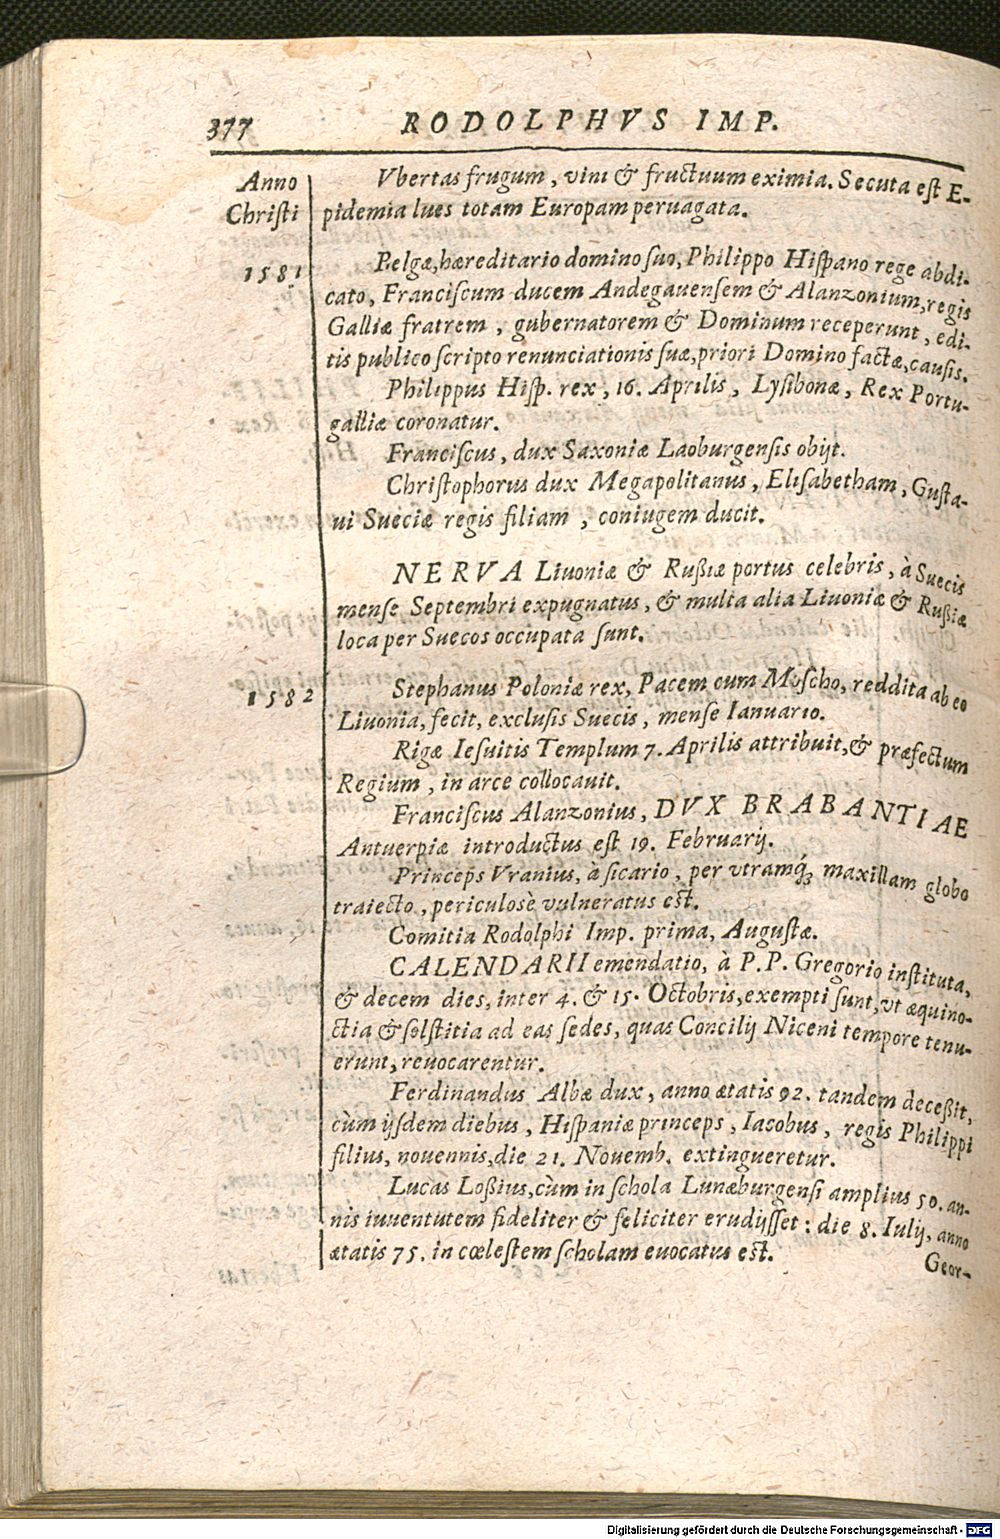 377 RODOLPHVS IMP.
Anno
Christi
Vbertas frugum, vini & fructuum eximia. Secuta est E-
pidemia lues totam Europam peruagata.
1581
Belgæ, hæreditario domino suo, Philippo Hispano rege abdi-
cato, Franciscum ducem Andegauensem & Alanzonium, regis
Galliæ fratrem, gubernatorem & Dominum receperunt, edi-
tis publico scripto renunciationis suæ, priori Domino factæ, causis.
Philippus Hisp. rex, 16. Aprilis, Lysibonæ, Rex Portu-
galliæ coronatur.
Franciscus, dux Saxoniæ Laoburgensis obijt.
Christophorus dux Megapolitanus, Elisabetham, Gusta-
ui Sueciæ regis filiam, coniugem ducit.
NERVA Liuoniæ & Rußiæ portus celebris, à Suecis
mense Septembri expugnatus, & multa alia Liuoniæ & Rußiæ
loca per Suecos occupata sunt.
1582
Stephanus Poloniæ rex, Pacem cum Moscho, reddita ab eo
Liuonia, fecit, exclusis Suecis, mense Ianuario.
Rigæ Iesuitis Templum 7. Aprilis attribuit, & præfectum
Regium, in arce collocauit.
Franciscus Alanzonius, DVX BRABANTIAE
Antuerpiæ introductus est 19. Februarij.
Princeps Vranius, à sicario, per vtramq́; maxillam globo
traiecto, periculosè vulneratus est.
Comitia Rodolphi Imp. prima, Augustæ.
CALENDARII emendatio, à P.P. Gregorio instituta,
& decem dies, inter 4. & 15. Octobris, exempti sunt, vt æquino-
ctia & solstitia ad eas sedes, quas Concilij Niceni tempore tenu-
erunt, reuocarentur.
Ferdinandus Albæ dux, anno ætatis 92. tandem deceßit,
cùm ijsdem diebus, Hispaniæ princeps, Iacobus, regis Philippi
filius, nouennis, die 21. Nouemb. extingueretur.
Lucas Loßius, cùm in schola Lunæburgensi amplius 50. an-
nis iuuentutem fideliter & feliciter erudijsset: die 8. Iulij, anno
ætatis 75. in cœlestem scholam euocatus est.
Geor-
Digitalisierung gefördert durch die Deutsche Forschungsgemeinschaft - DFG